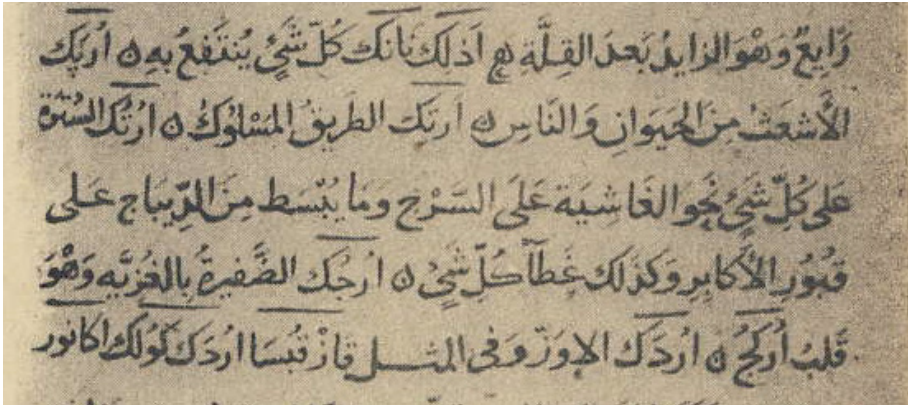 رَايعٌ وَهْوَ الزايدُ بَعدَ القِلَّةِ ه اَذلَك نَانَك كُلّ شَئٍ يُنتَفعُ بهِ ه اَربَك
الأَشعَثُ مِنَ الحَيَوانِ وَالنَّاسِ ه اَرتَك الطَرِيقُ المَسْلُوكُ ه اُرتُك السُترَةُ
عَلى كلّ شَئٍ نَحوَ الغَاشيَة عَلَى السَرْج وَمَا يُبْسَط مِنَ الدِّيبَاج عَلى
قبُورِ الأَكابِر وَكذلك غِطَآ كُلّ شَئٍ ه اُرجُك الضَّفِيرةُ بالغُزيّه وَهْوَ
قَلبُ اُركُجْ ه اُردَك الاِوَزّ وَفى المثل قازْ قُبسَا اُردَك كُولك اكانور